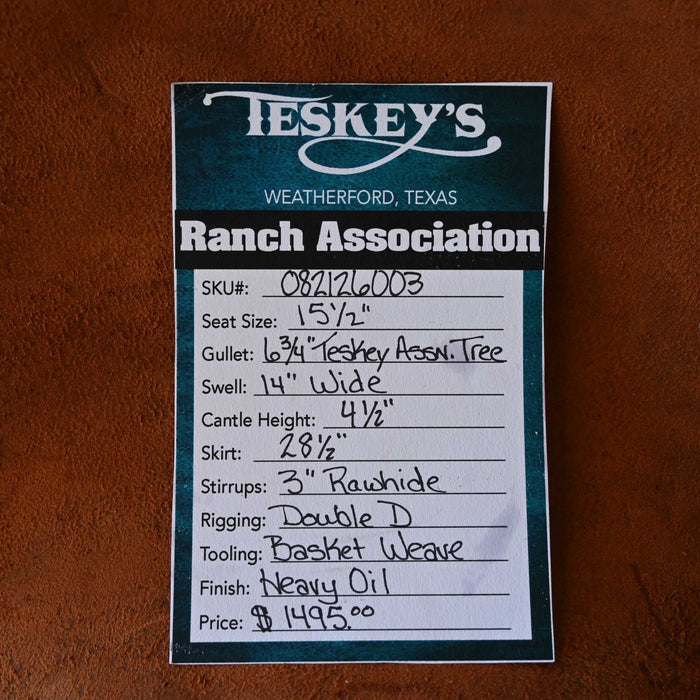 TESKEY'S
WEATHERFORD, TEXAS
Ranch Association
SKU#: 082126003
Seat Size: 15 1/2"
Gullet: 6 3/4" Teskey Assn. Tree
Swell: 14" Wide
Cantle Height: 4 1/2"
Skirt: 28 1/2"
Stirrups: 3" Rawhide
Rigging: Double D
Tooling: Basket Weave
Finish: Heavy Oil
Price: $ 1495.00